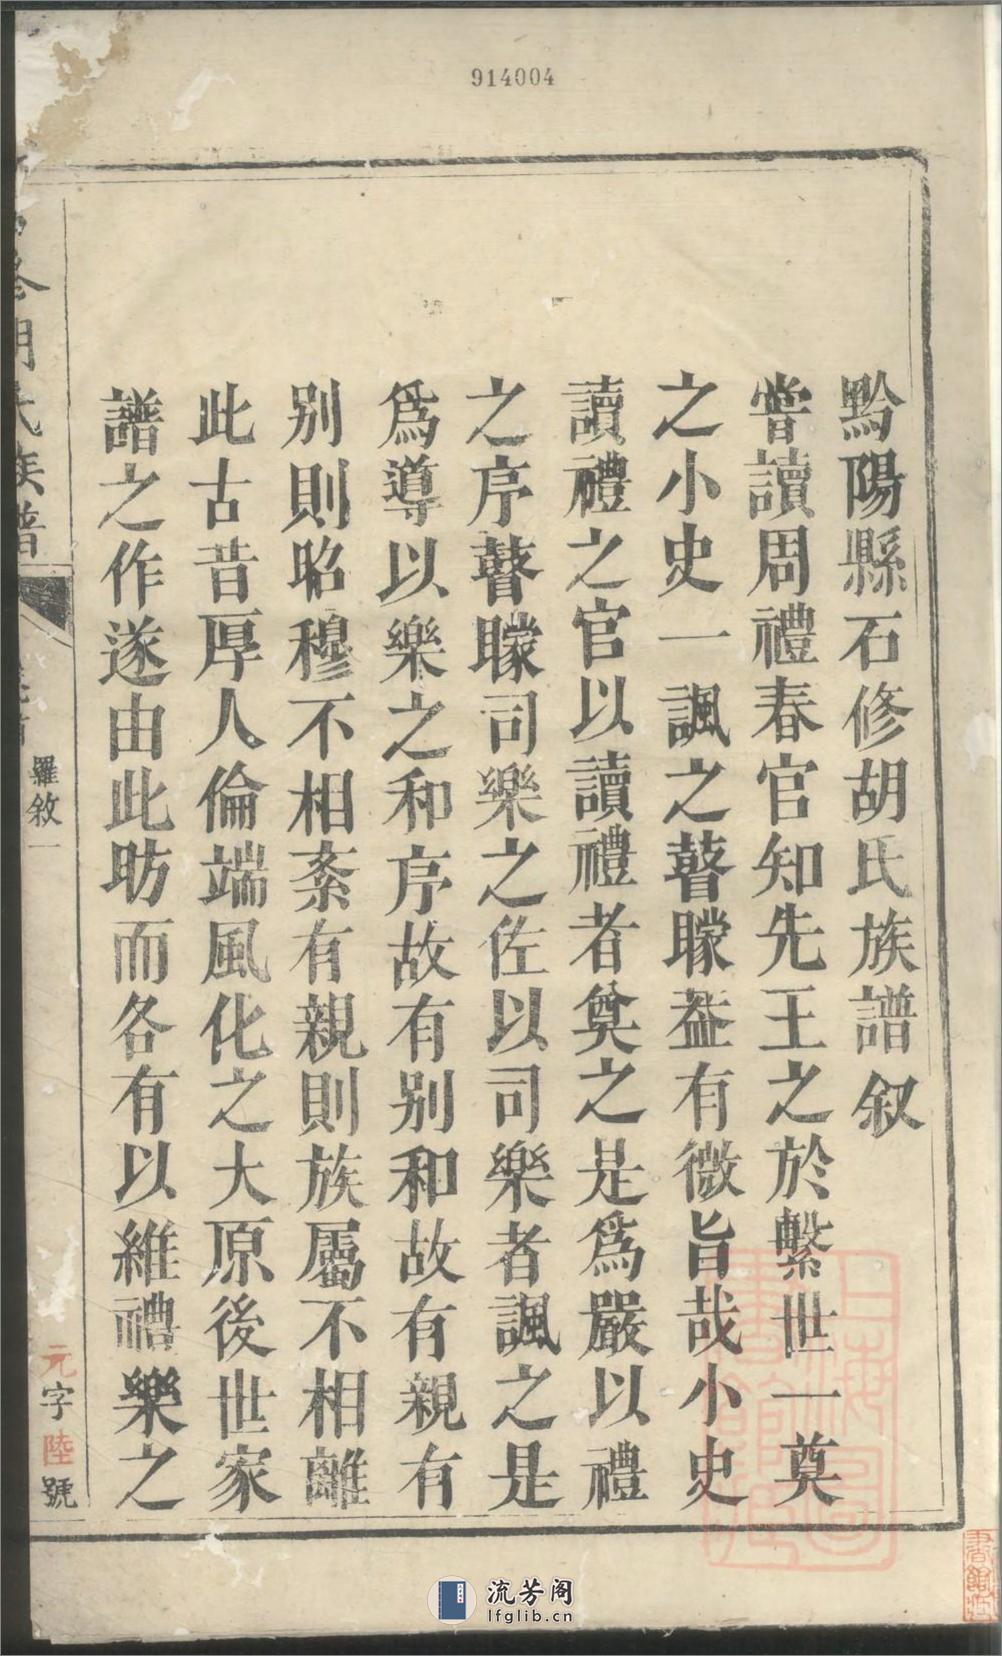 914004
黔陽縣石修胡氏族譜叙
嘗讀周禮春官知先王之於繫世一奠
之小史一諷之瞽矇葢有微旨哉小史
讀禮之官以讀禮者奠之是爲嚴以禮
之序瞽矇司樂之佐以司樂者諷之是
爲導以樂之和序故有别和故有親有
别則昭穆不相紊有親則族屬不相離
此古昔厚人倫端風化之大原後世家
譜之作遂由此昉而各有以維禮樂之
胡氏族譜
卷首
羅敘一
元字陸號
上海圖書館藏
流芳阁
lfglib.cn